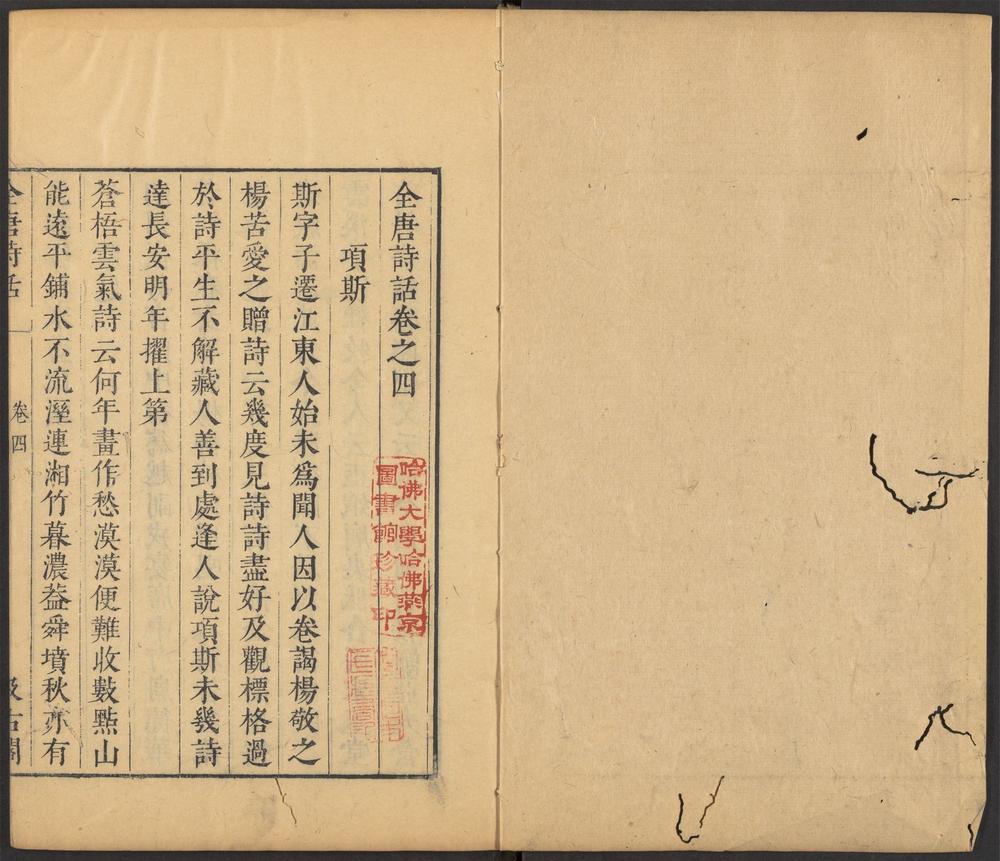 全唐詩話卷之四
項斯
斯字子遷江東人始未爲聞人因以卷謁楊敬之
楊苦愛之贈詩云幾度見詩詩盡好及觀標格過
於詩平生不解藏人善到處逢人說項斯未幾詩
達長安明年擢上第
蒼梧雲氣詩云何年畫作愁漠漠便難收數點山
能遠平鋪水不流溼連湘竹暮濃葢舜墳秋亦有
全唐詩話
卷四
汲古閣
哈佛大學哈佛燕京
圖書館珍藏印